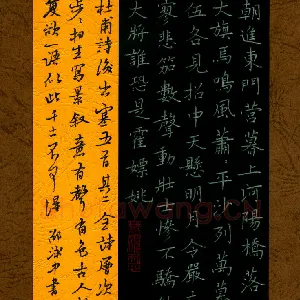 朝進東門營暮上河陽橋落
大旗馬鳴風蕭〻平沙列萬幕
伍各見招中天懸明月令嚴
寥悲笳數聲動壯士慘不驕
大將誰恐是霍嫖姚
杜甫詩後出塞五首其二全詩層次
相生寫景叙意有聲有色古人
欲一語似此千古不可得 書